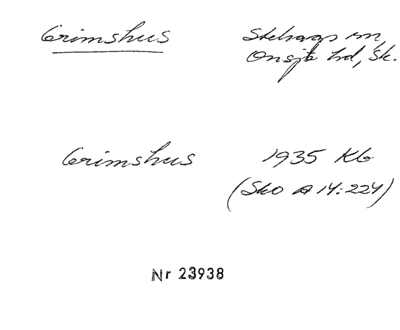 Grimshus Stehags sn,
Onsjö hd, Sk.
Grimshus 1935 Kb
(Sko A 14:224)
Nr 23938